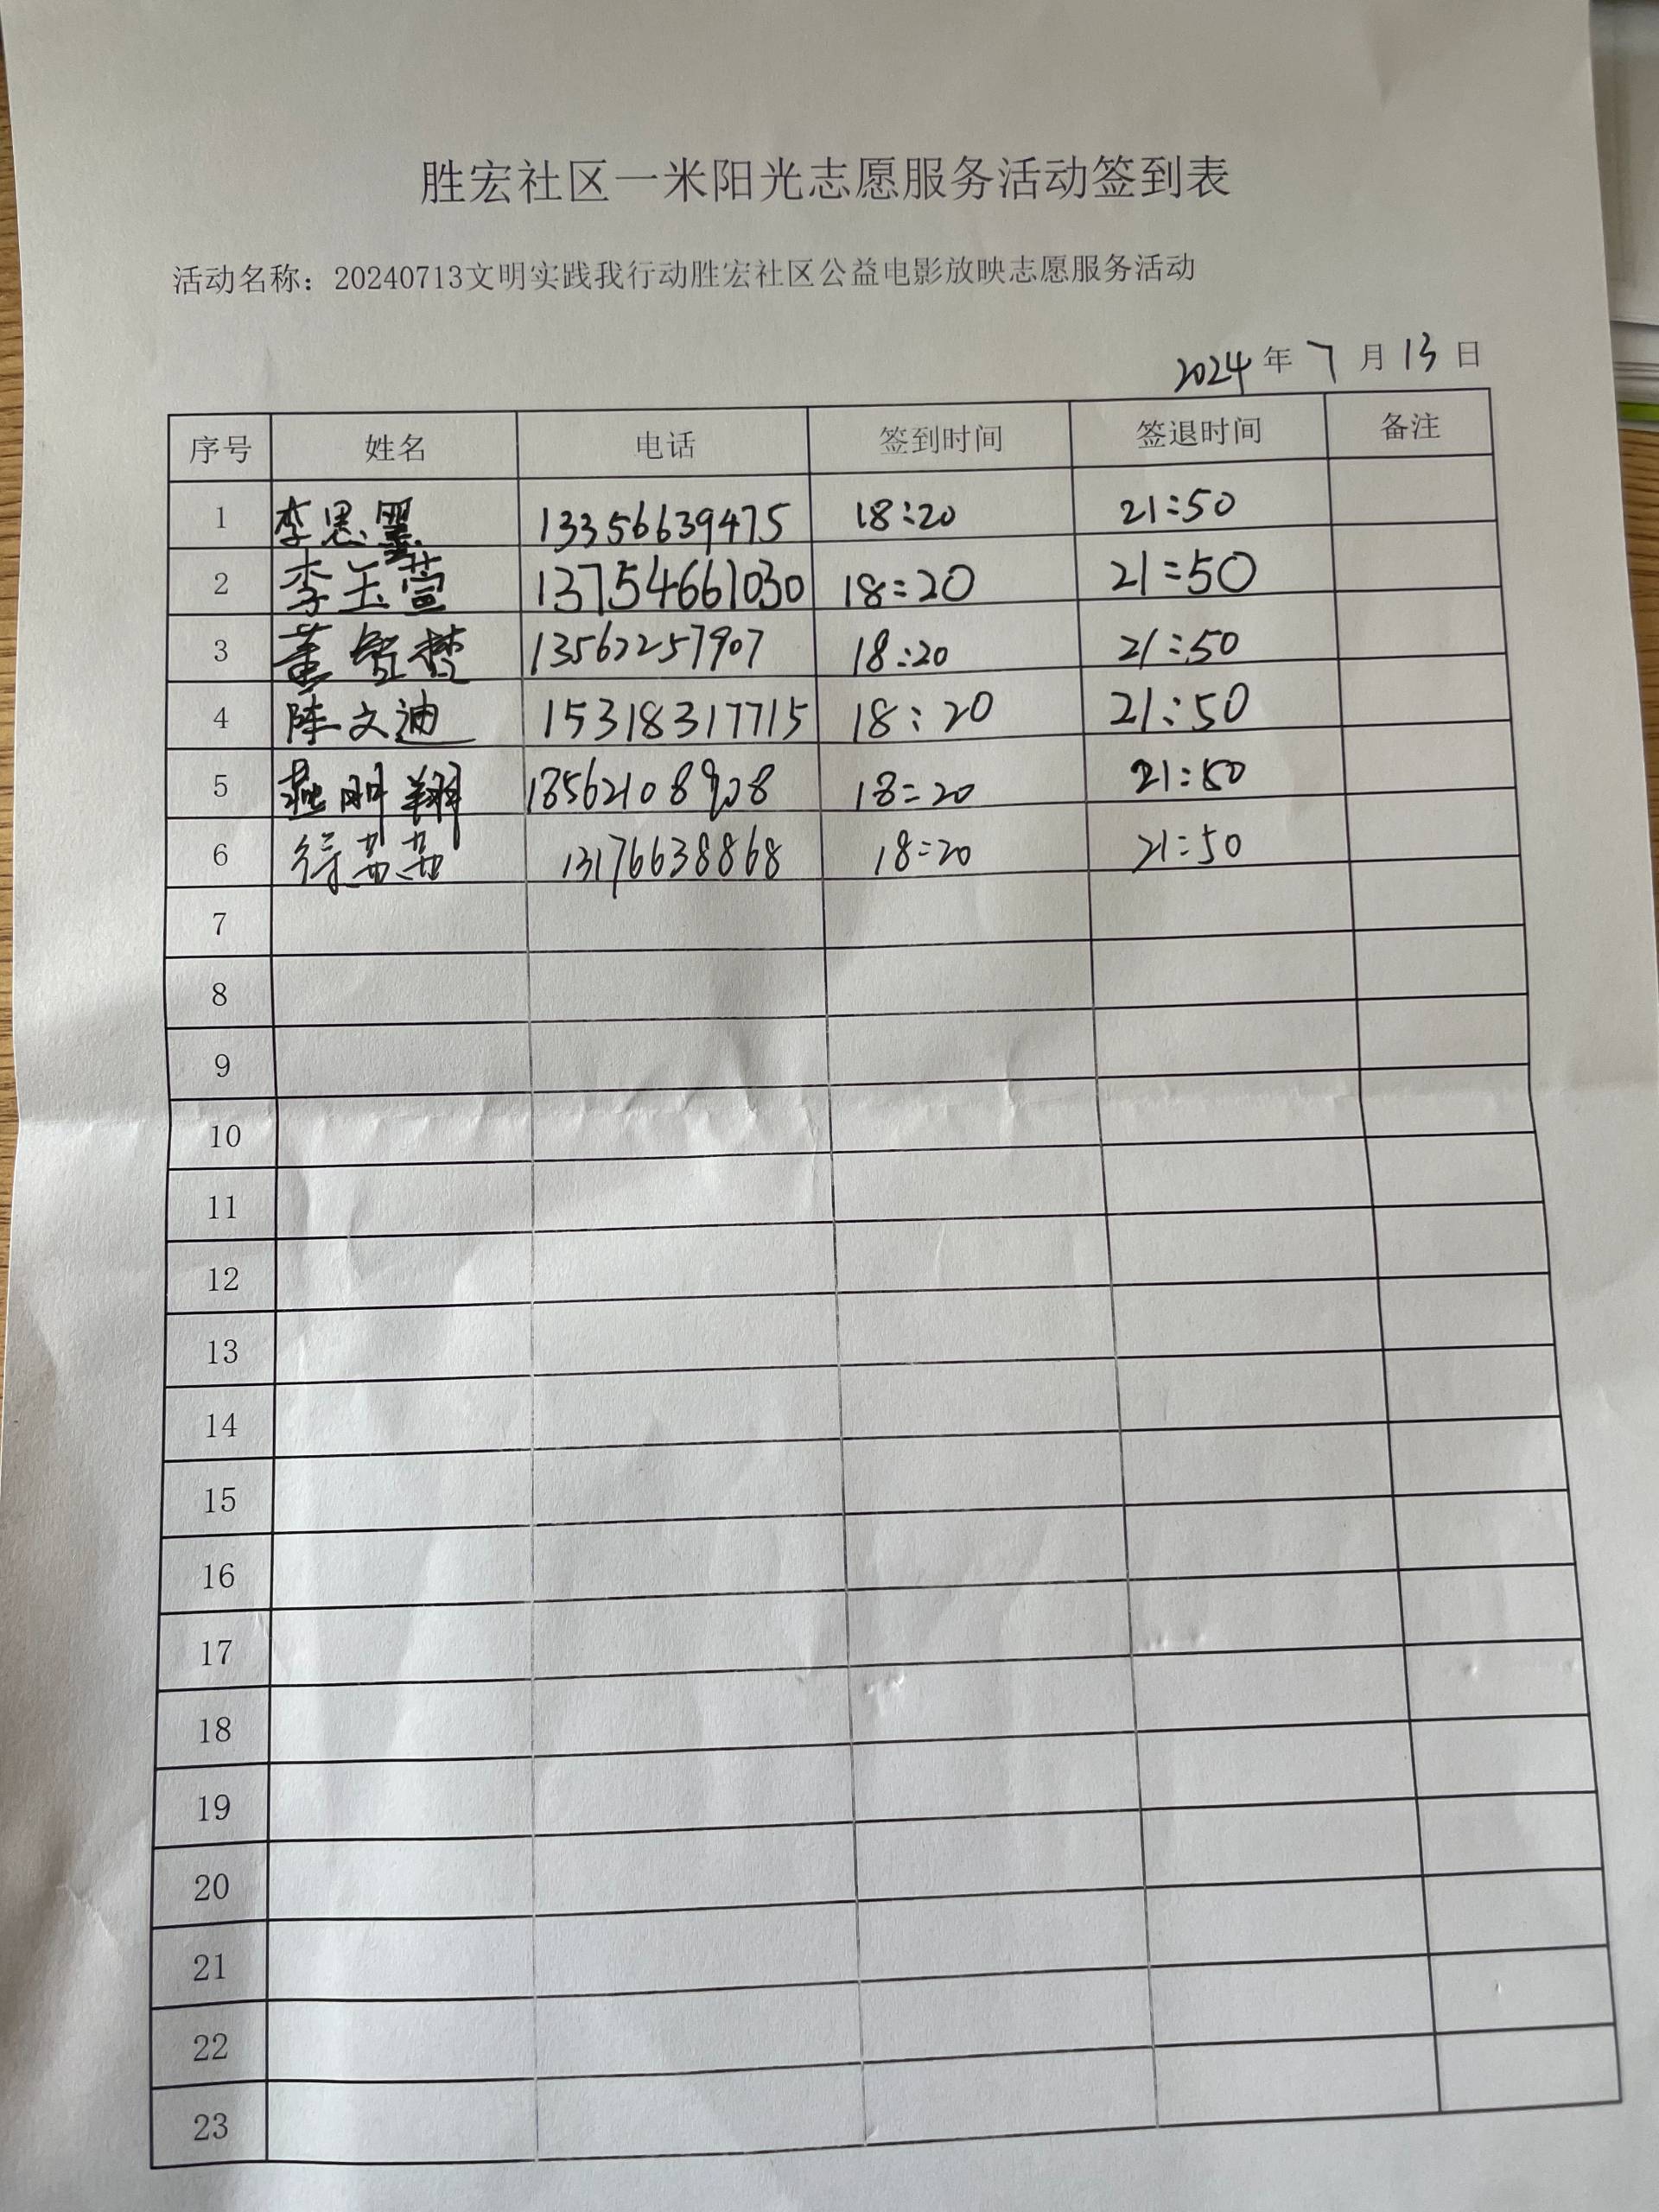 胜宏社区一米阳光志愿服务活动签到表
活动名称：20240713文明实践我行动胜宏社区公益电影放映志愿服务活动
2024年7月13日
序号 姓名 电话 签到时间 签退时间 备注
1 李思墨 13356639475 18:20 21:50
2 李玉萱 13754661030 18:20 21:50
3 董智楚 13562257907 18:20 21:50
4 陈文迪 15318317715 18:20 21:50
5 燕明翔 18:20 21:50
6 徐芸芸 13176638868 18:20 21:50
7
8
9
10
11
12
13
14
15
16
17
18
19
20
21
22
23